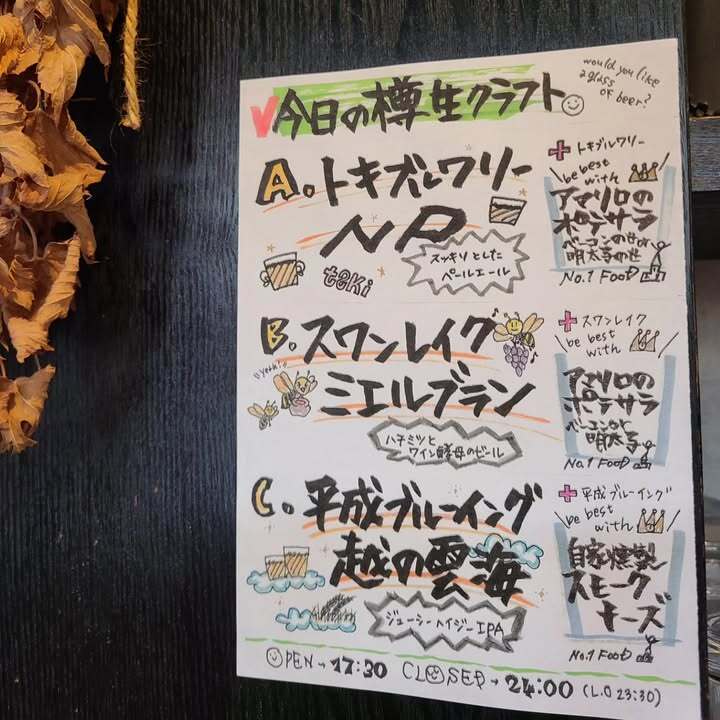 今日の樽生クラフト
would you like
a glass
of beer?
A. トキブルワリー
NP
toki
スッキリとした
ペールエール
+ トキブルワリー
be best
with
アマリロの
ポテサラ
ベーコンのせor
明太子のせ
No.1 FOOD
B. スワンレイク
ミエルブラン
ハチミツと
ワイン酵母のビール
+ スワンレイク
be best
with
アマリロの
ポテサラ
ベーコンor
明太子
No.1 FOOD
C. 平成ブルーイング
越の雲海
ジューシーヘイジーIPA
+ 平成ブルーイング
be best
with
自家燻製
スモーク
チーズ
No.1 FOOD
OPEN→17:30 CLOSED→24:00 (L.O 23:30)